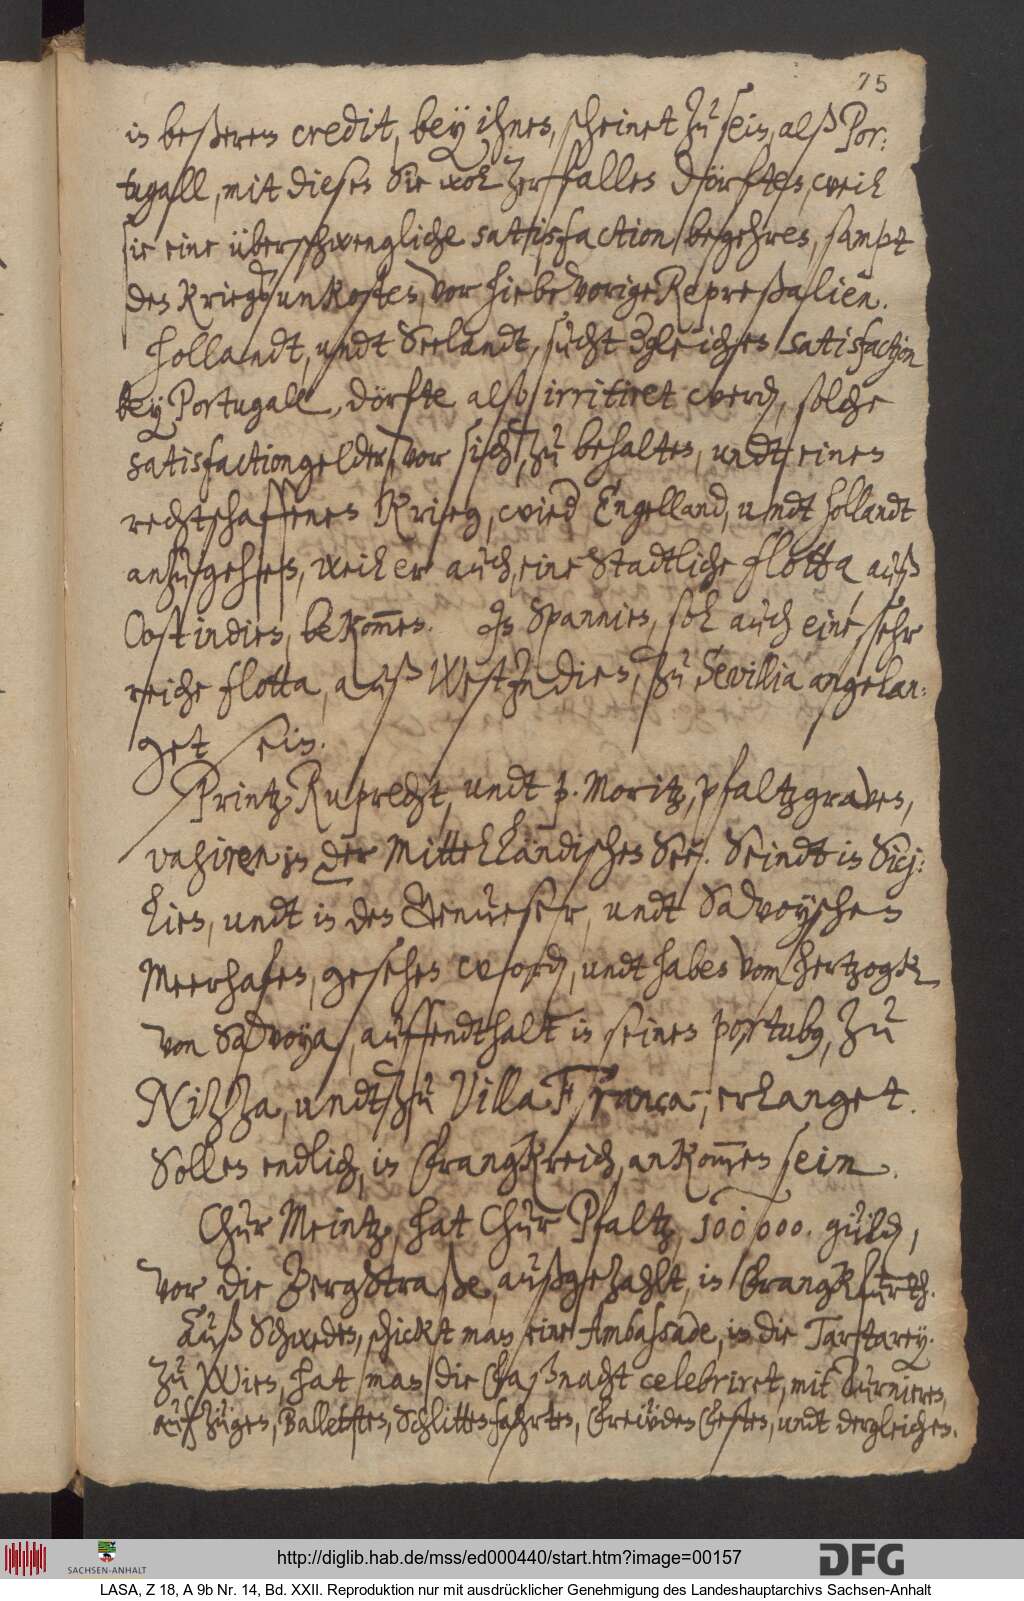 75
in beßeren credit, bey ihnen, scheinet zu sein, alß Por:
tugall, mit diesen Sie wol zerfallen dörften, weil
sie eine überschwengliche satisfaction begehren, sampt
den Kriegsunkosten, vor hiebevorige Repreßalien.
Hollandt, undt Seelandt, sucht dgleichen satisfaction
bey Portugall, dörfte also irritiret werd, solche
satisfactiongelder, vor sich, zu behalten, undt einen
rechtschaffenen Krieg, wied Engelland, undt Hollandt
anzugehen, weil er auch, eine Stadtliche flotta, auß
Oost indien, bekommen. In Spannien, sol auch eine sehr
reiche flotta, auß West Indien, zu Sevillia angelan:
get sein.
Printz Ruprecht, undt p. Moritz, pfaltzgraven,
vagiren in der Mittelländischen See. Seindt in Sici:
lien, undt in den Genueser, undt Savoyschen
Meerhafen, gesehen word, undt haben vom Hertzogk
von Savoya, auffendthalt in seinen portub9, zu
Nizza, undt zu Villa Franca, erlanget.
Sollen endlich, in Frangkreich, ankommen sein.
Chur Meintz, hat Chur Pfaltz, 100000. güld,
vor die BergStraße, außgezahlt, in Frangkfurth.
Auß Schweden, schickt man eine Ambassade, in die Tartarey.
Zu Wien, hat man die Faßnacht celebriret, mit Turnieren,
aufzügen, Balletten, Schlittenfahrten, Freüden Festen, undt dergleichen.
http://diglib.hab.de/mss/ed000440/start.htm?image=00157
SACHSEN-ANHALT
DFG
LASA, Z 18, A 9b Nr. 14, Bd. XXII. Reproduktion nur mit ausdrücklicher Genehmigung des Landeshauptarchivs Sachsen-Anhalt